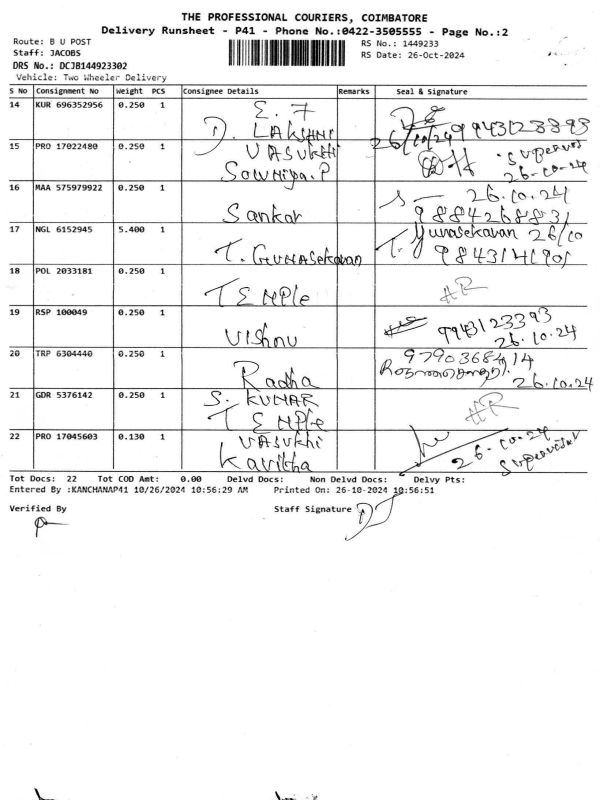 THE PROFESSIONAL COURIERS, COIMBATORE
Delivery Runsheet - P41 - Phone No.:0422-3505555 - Page No.:2
Route: B U POST RS No.: 1449233
Staff: JACOBS RS Date: 26-Oct-2024
DRS No.: DCJB144923302
Vehicle: Two Wheeler Delivery
S No Consignment No Weight PCS Consignee Details Remarks Seal & Signature
14 KUR 696352956 0.250 1 E. 7
D. LAKSHMI 26/10/24 9943123393
15 PRO 17022480 0.250 1 VASUKHI Supervisor
Sowmiya.P 26-10-24
16 MAA 575979922 0.250 1 Sankar 26.10.24
9884268831
17 NGL 6152945 5.400 1 T. GUNASekaran T. Gunasekaran 26/10
18 POL 2033181 0.250 1 TEMPle HR
19 RSP 100049 0.250 1 Vishnu 9943123393
26.10.24
20 TRP 6304440 0.250 1 Radha 9790368414
26.10.24
21 GDR 5376142 0.250 1 S. KUMAR
TEMPle HR
22 PRO 17045603 0.130 1 VASUKhi 26-10-24
Kavitha Supervisor
Tot Docs: 22 Tot COD Amt: 0.00 Delvd Docs: Non Delvd Docs: Delvy Pts:
Entered By :KANCHANAP41 10/26/2024 10:56:29 AM Printed On: 26-10-2024 10:56:51
Verified By Staff Signature